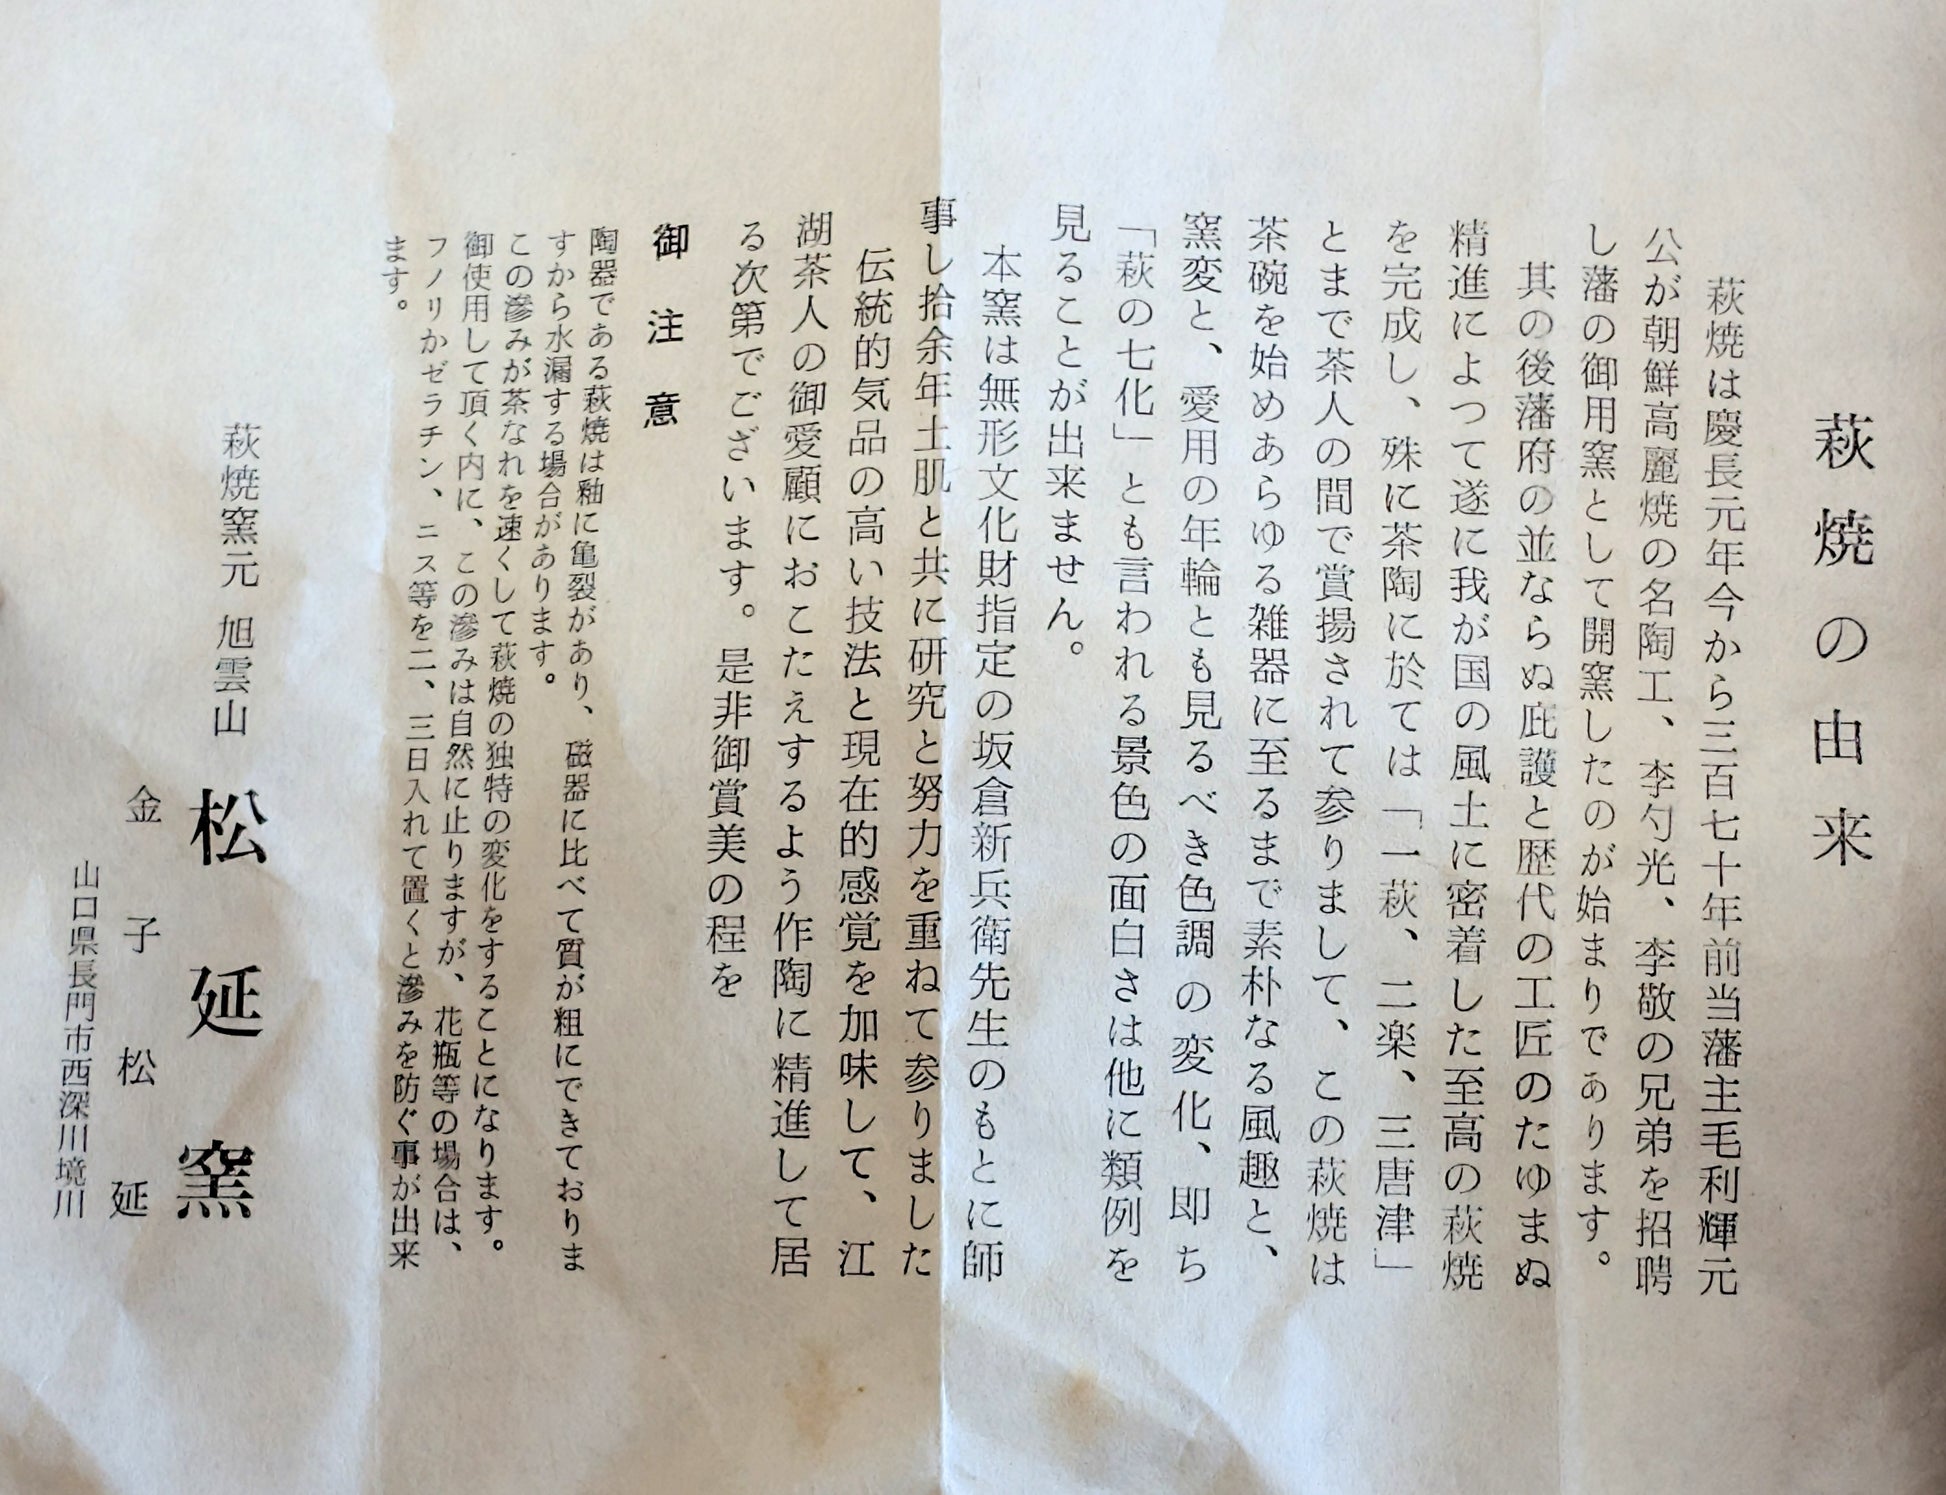 萩焼の由来
萩焼は慶長元年今から三百七十年前当藩主毛利輝元
公が朝鮮高麗焼の名陶工、李勺光、李敬の兄弟を招聘
し藩の御用窯として開窯したのが始まりであります。
其の後藩府の並ならぬ庇護と歴代の工匠のたゆまぬ
精進によつて遂に我が国の風土に密着した至高の萩焼
を完成し、殊に茶陶に於ては「一萩、二楽、三唐津」
とまで茶人の間で賞揚されて参りまして、この萩焼は
茶碗を始めあらゆる雑器に至るまで素朴なる風趣と、
窯変と、愛用の年輪とも見るべき色調の変化、即ち
「萩の七化」とも言われる景色の面白さは他に類例を
見ることが出来ません。
本窯は無形文化財指定の坂倉新兵衛先生のもとに師
事し拾余年土肌と共に研究と努力を重ねて参りました
伝統的気品の高い技法と現在的感覚を加味して、江
湖茶人の御愛顧におこたえするよう作陶に精進して居
る次第でございます。是非御賞美の程を
御注意
陶器である萩焼は釉に亀裂があり、磁器に比べて質が粗にできておりま
すから水漏する場合があります。
この滲みが茶なれを速くして萩焼の独特の変化をすることになります。
御使用して頂く内に、この滲みは自然に止りますが、花瓶等の場合は、
フノリかゼラチン、ニス等を二、三日入れて置くと滲みを防ぐ事が出来
ます。
萩焼窯元 旭雲山 松延窯
金子松延
山口県長門市西深川境川